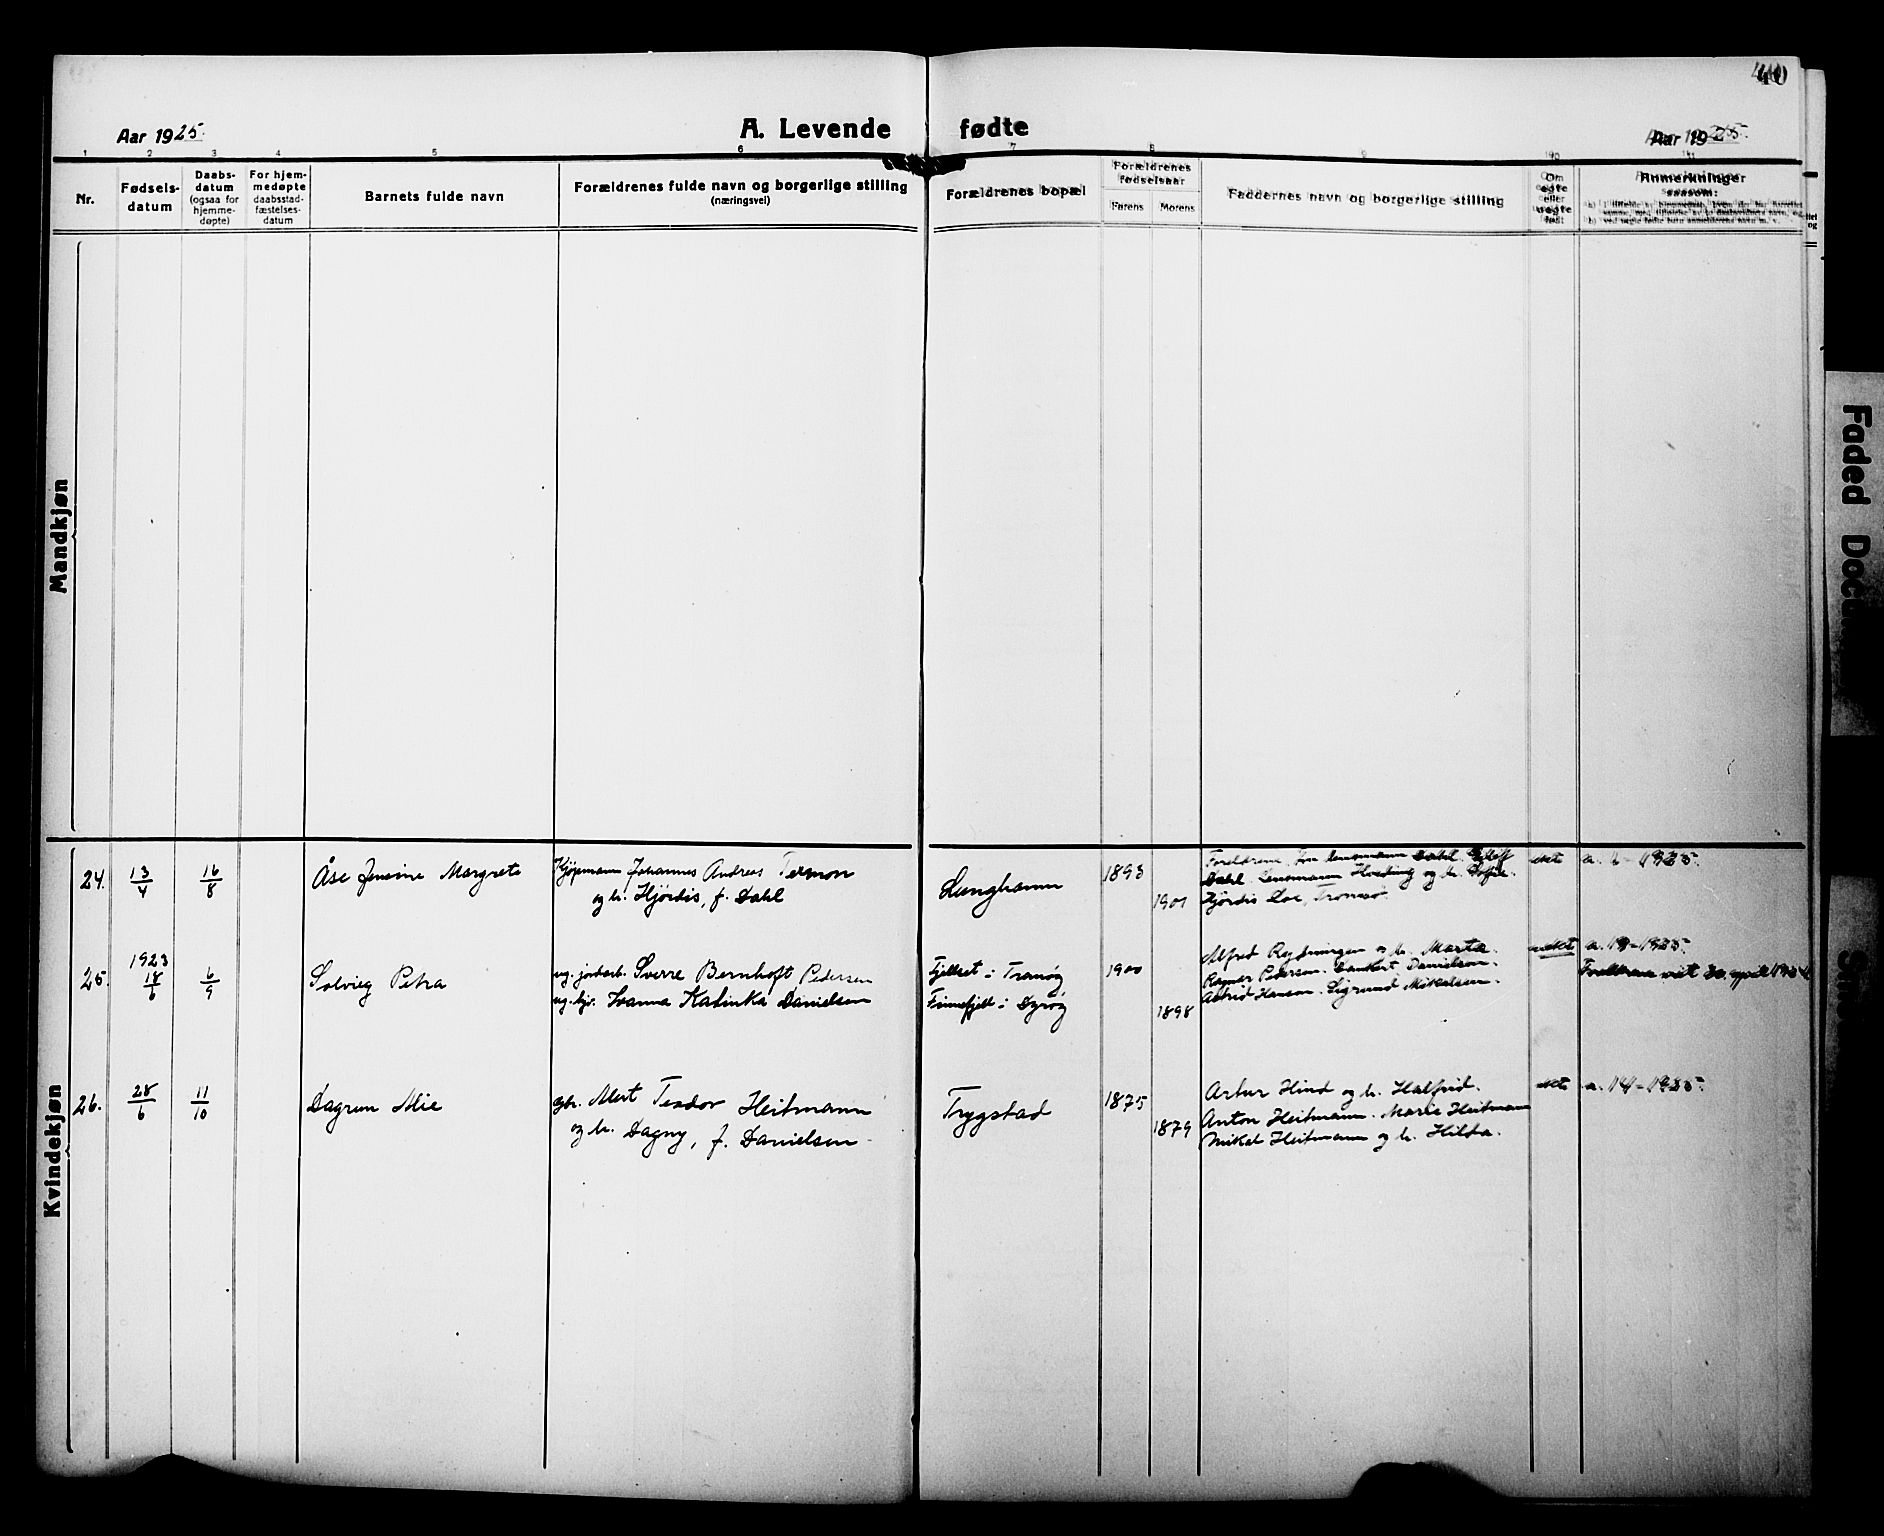 40
Aar 1925.
A. Levende fødte
Aar 1925.
1 2 3 4 5 6 7 8 9 10 11
Nr.
Fødsels-
datum
Daabs-
datum
(ogsaa for
hjemme-
døpte)
For hjem-
medøpte
daabsstad-
fæstelses-
datum
Barnets fulde navn
Forældrenes fulde navn og borgerlige stilling
(næringsvei)
Forældrenes bopæl
Forældrenes
fødselsaar
Farens
Morens
Faddernes navn og borgerlige stilling
Om
egte
eller
uegte
født
Anmerkninger
saasom:
Mandkjøn
Kvindekjøn
24. 13/4 16/8 Åse Jensine Margrete
Kjøpmann Johannes Andreas Termon
og h. Hjørdis, f. Dahl
Lunghamn
1893
1901
Foreldrene, fru lensmann Dahl.
Dahl. Lensmann og h. Sofie.
Hjørdis Loe, Tromsø.
ekte
a. 6-1925.
25. 1923 18/6 6/9 Solvieg Petra
ug. jordarb. Sverre Bernhoft Pedersen
ug. hjv. Ivanna Katinka Danielsen
Fjellset i Tranøy
Finnfjell i Dyrøy
1900
1898
Alfred Rognmngen og h. Marta.
Ragnar Pedersen. Lankert Danielsen.
Astrid Hanson. Sigrund Mikalsen.
uekte
a. 19-1925.
Foreldrene viet 30. april 1924
26. 28/6 11/10 Dagrun Mie
gbr. Mert Teodor Heitmann
og h. Dagny, f. Danielsen
Trygstad
1875
1879
Artur Hind og h. Halfrid.
Anton Heitmann. Marie Heitmann
Mikal Heitmann og h. Hilda.
ekte
a. 14-1925.
Faded